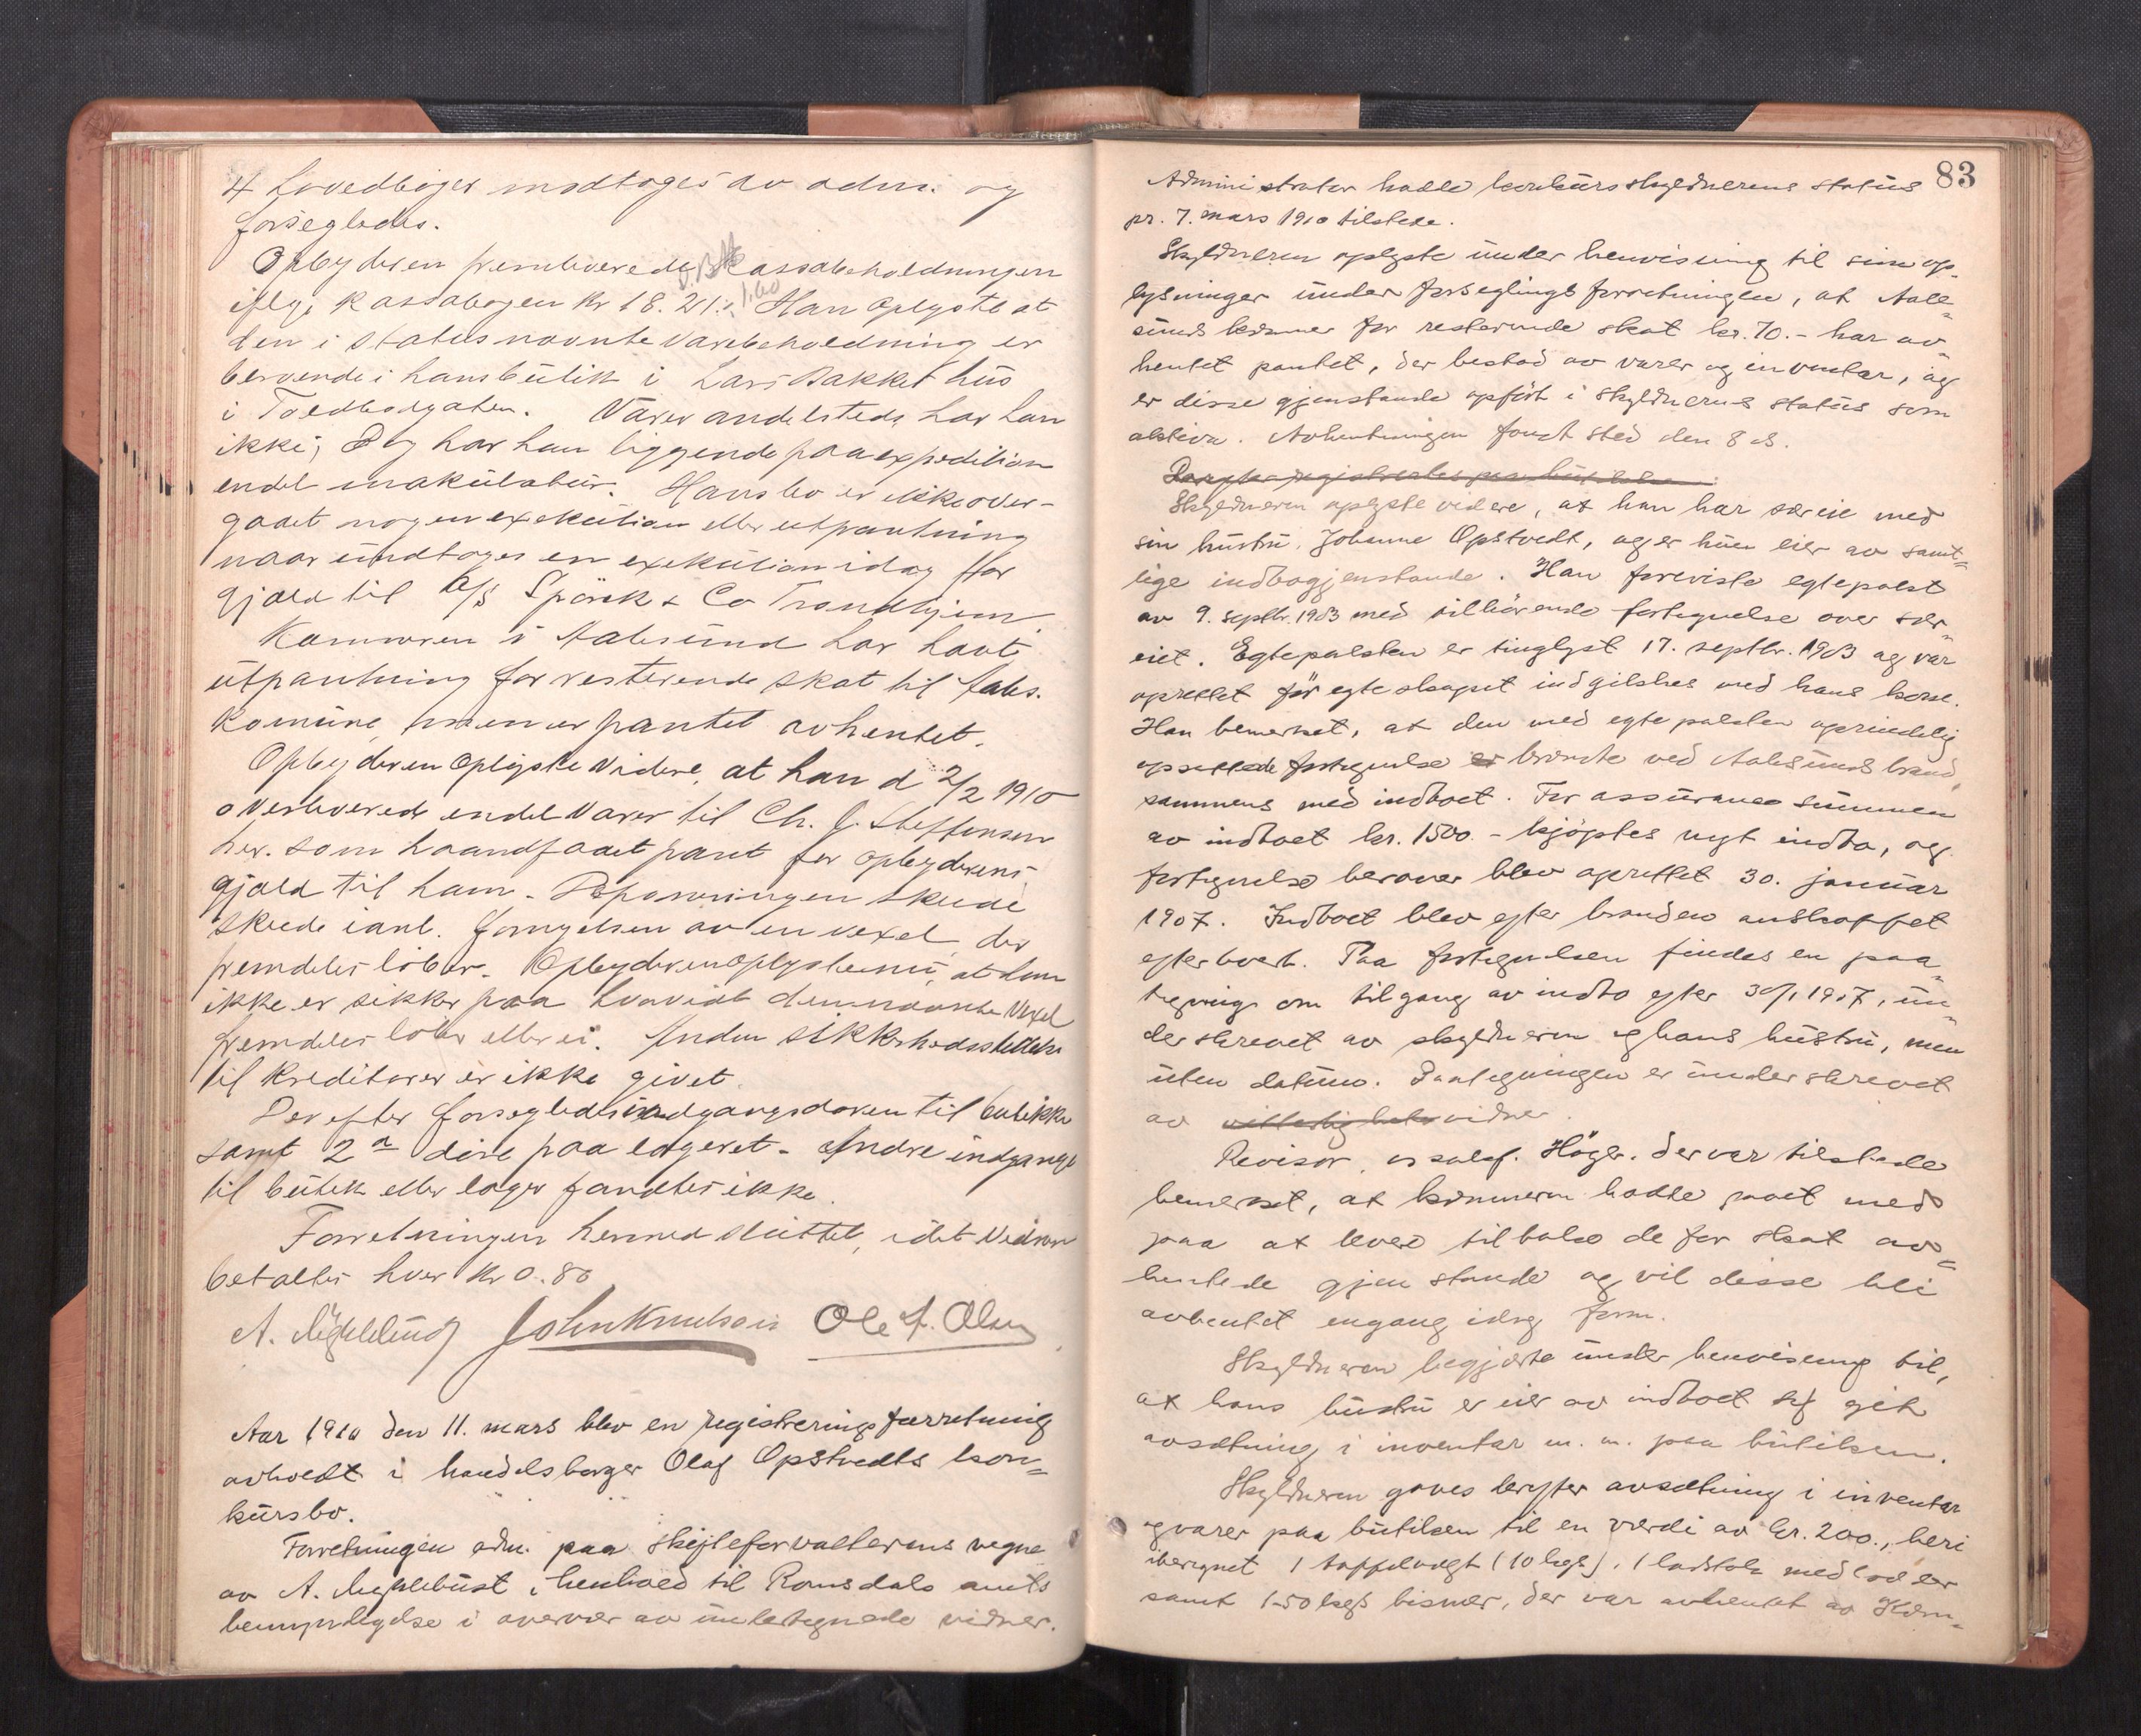 4 hovedbøger modtoges av adm. og
forsegledes.
Opbyderen fremleverede Kassabeholdningen
ifлg. Kassabogen Kr 18.21. Han oplyste at
1.60
den i status nævnte Varebeholdning er
beroende i hans butik i Lars Bakket hus
i Toldbodgaten. Varer andetsteds har han
ikke; Dog har han liggende paa expedition
endel makulatur. Hans bo er ikke over-
gaaet nogen exekution eller utpantning
naar undtages en exekution idag for
gjæld til A/S Spørck & Co Trondhjem
Kæmneren i Aalesund har havt
utpantning for resterende skat til Aales.
Komune, men er pantet avhentet.
Opbyderen oplyste videre, at han d 2/2 1910
overleverede endel Varer til Ch. J. Steffensen
her. som haandfaaet pant for opbyderens
gjæld til ham. Deponeringen skede
skede i anl. fornyelsen av en vexel der
fremdeles løber. Opbyderen oplyste nu, at han
ikke er sikker paa hvorvidt den nævnte Vexel
fremdeles løber eller ei. Anden sikkerhedsstillelse
til Kreditorer er ikke givet.
Derefter forsegledes indgangsdøren til butikke
samt 2 døre paa lageret. Andre indgange
til butik eller lager fandtes ikke.
Forretningen hermed sluttet, idet Vidnene
betaltes hver Kr 0.80
A. Myklebust John Knudsen Ole A. Olsen
Aar 1910 den 11. mars blev en registreringsforretning
avholdt i handelsborger Olaf Opstvedts kon-
kursbo.
Forretningen adm. paa skifteforvalterens vegne
av A. Myklebust i henhold til Romsdals amts
bemyndigelse i overvær av undertegnede vidner.
83
Administrator hadde konkursskyldnerens status
pr. 7. mars 1910 tilstede.
Skyldneren oplyste under henvisning til sine op-
lysninger under forseglingsforretningen, at Aale-
sunds kæmner for resterende skat kr. 70.- har av-
hentet pantet, der bestod av varer og inventar, og
er disse gjenstande opført i skyldnerens status som
aktiva. Avhentningen fandt sted den 8 ds.
Derefter registrertes paa butikken
Skyldneren oplyste videre, at han har særeie med
sin hustru, Johanne Opstvedt, og er hun eier av samt-
lige indbogjenstande. Han foreviste egtepakt
av 9. septbr. 1903 med tilhørende fortegnelse over sær-
eiet. Egtepakten er tinglyst 17. septbr. 1903 og var
oprettet før egteskapet indgikkes med hans kone.
Han bemerket, at den med egtepakten oprindelig
opsettede fortegnelse er brændte ved Aalesunds brand
sammens med indboet. For assurancesummen
av indboet kr. 1500.- kjøptes nyt indbo, og
fortegnelse herover blev oprettet 30. januar
1907. Indboet blev efter branden anskaffet
efterhvert. Paa fortegnelsen findes en paa-
tegning om tilgang av indbo efter 30/1 1907, un-
derskrevet av skyldneren og hans hustru, men
uten datum. Paategningen er underskrevet
av vitterlighets vidner.
Revisor, o. salsf. Høgh. der var tilstede
bemerket, at kæmneren hadde gaaet med
paa at levere tilbake de for skat av-
hentede gjenstande og vil disse bli
avhentet engang idag form.
Skyldneren begjærte under henvisning til,
at hans hustru er eier av indboet sig git
avsætning i inventar m. m. paa butikken.
Skyldneren gaves derefter avsætning i inventar
og varer paa butikken til en værdi av kr. 200., heri
iberegnet 1 taffelvægt (10 kgs), 1 ladstok med lodder
samt 1-50 kgs bismer, der var avhentet av Kæm-